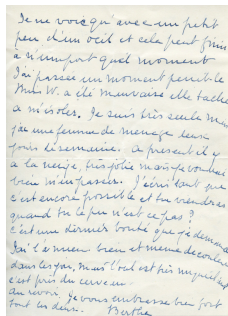 Je ne vois qu'avec un petit
peu d'un oeil et cela peut finir
à n'import quel moment
J'ai passée un moment penible
Mme W. a été mauvaise elle tache
a m'isoler. Je suis très seule mais
j'ai une femme de menage deux
jours de semaine. A present il y
a la neige, très jolie mais je voudrais
bien m'en passer. J'écris tant que
c'est encore possible et tu viendras
quand tu le peu n'est ce pas?
c'est une dernier bonté que je demande
J'ai bien et meme decouler
dans les pas, mais l'oeil est très inquietant
c'est près du cerveau
au revoir, je vous embrasse bien fort
tout les deux. Berthe